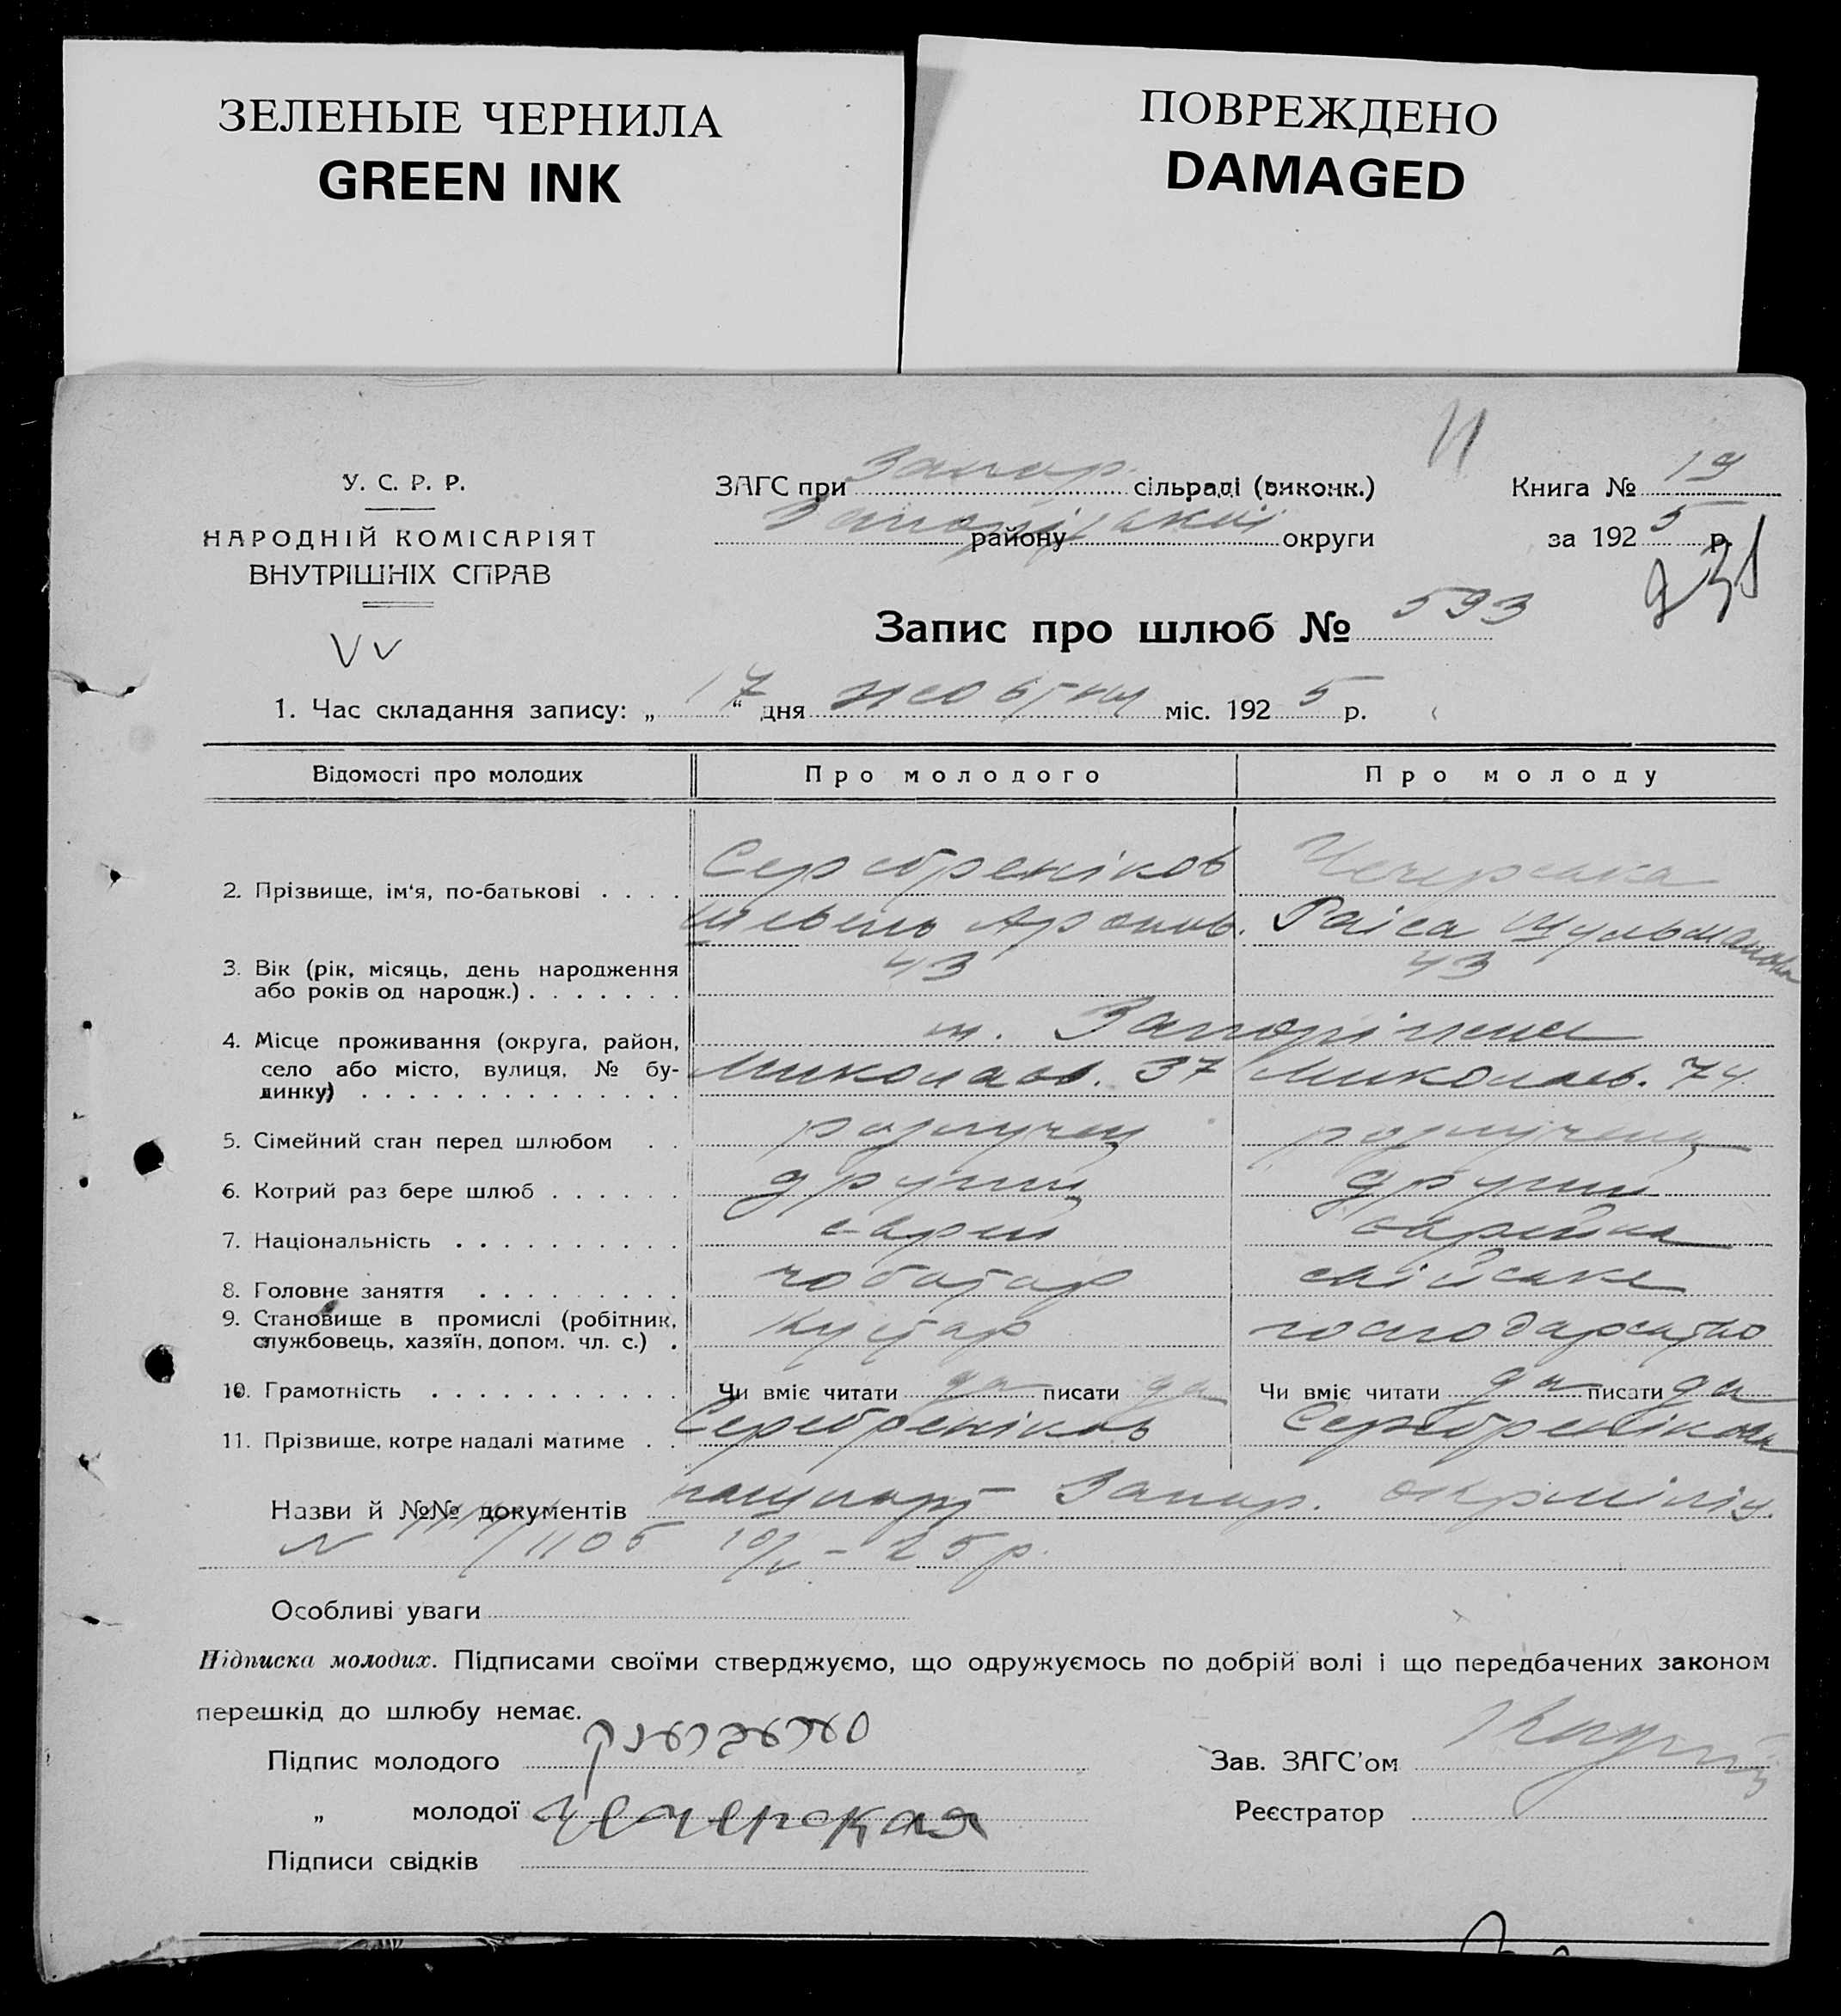 ЗЕЛЕНЫЕ ЧЕРНИЛА
GREEN INK
ПОВРЕЖДЕНО
DAMAGED
У. С. Р. Р.
НАРОДНІЙ КОМІСАРІЯТ
ВНУТРІШНІХ СПРАВ
ЗАГС при Запор. сільраді (виконк.)
району Запорізький округи
Книга № 19
за 1925 р.
Запис про шлюб № 593
1. Час складання запису: „17“ дня жовтня міс. 1925 р.
Відомості про молодих Про молодого Про молоду
2. Прізвище, ім'я, по-батькові . . . . Серебреніков Чечерська
Шевель Аронов. Раіса Шульманова
3. Вік (рік, місяць, день народження
або років од народж.) . . . . . . . 43 43
4. Місце проживання (округа, район, м. Запоріжжя
село або місто, вулиця, № бу- Миколаев. 37 Миколаев. 74
динку) . . . . . . . . . . . . . .
5. Сімейний стан перед шлюбом . .
6. Котрий раз бере шлюб . . . . . . другий другий
7. Національність . . . . . . . . . . еврей еврейка
8. Головне заняття . . . . . . . . . чоботар сійське
9. Становище в промислі (робітник, кустар господарство
службовець, хазяїн, допом. чл. с.) .
10. Грамотність . . . . . . . . . . . Чи вміє читати да писати да Чи вміє читати да писати да
11. Прізвище, котре надалі матиме . . Серебреніков Серебренікова
Назви й №№ документів пашпорт Запор. окрміліц.
25 р.
Особливі уваги
Підписка молодих. Підписами своїми стверджуємо, що одружуємось по добрій волі і що передбачених законом
перешкід до шлюбу немає.
Підпис молодого
Зав. ЗАГС'ом
„ молодої Чечерская
Реєстратор
Підписи свідків